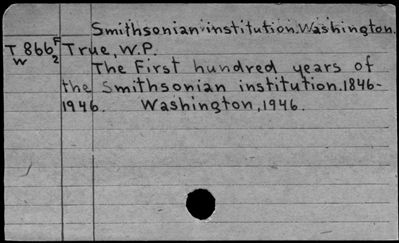 Smithsonian institution. Washington.
T 866 F True, W.P.
W 2 The First hundred years of
the Smithsonian institution. 1846-
1946. Washington, 1946.